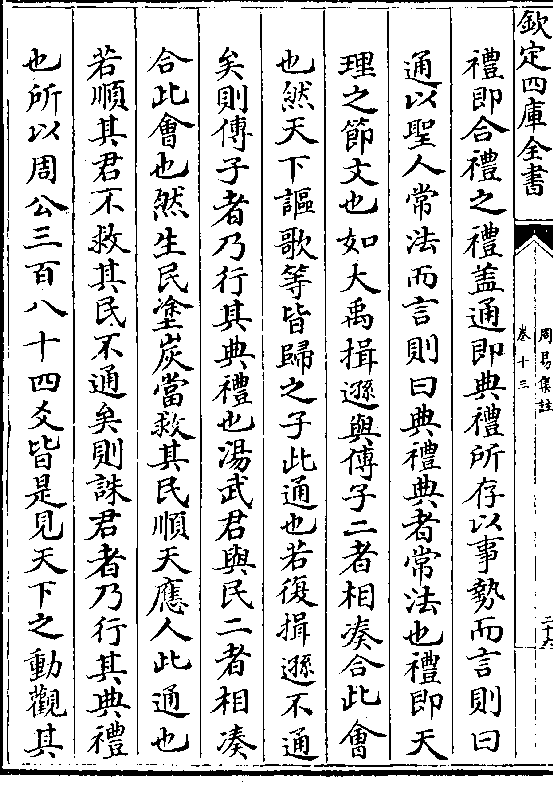 欽定四庫全書
周易集註
卷十三
禮即合禮之禮蓋通即典禮所存以事勢而言則曰
通以聖人常法而言則曰典禮典者常法也禮即天
理之節文也如大禹揖遜與傳子二者相湊合此會
也然天下謳歌等皆歸之子此通也若復揖遜不通
矣則傳子者乃行其典禮也湯武君與民二者相湊
合此會也然生民塗炭當救其民順天應人此通也
若順其君不救其民不通矣則誅君者乃行其典禮
也所以周公三百八十四爻皆是見天下之動觀其